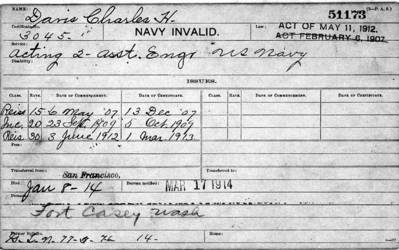 NAME: 51173
Davis Charles H.
Certificate No. NAVY INVALID. LAW: ACT OF MAY 11, 1912,
3045- ACT FEBRUARY 6, 1907
Service:
Acting 2- Asst. Engr US Navy
Disability:
ISSUES.
CLASS. RATE. DATE OF COMMENCEMENT. DATE OF CERTIFICATE. CLASS. RATE. DATE OF COMMENCEMENT. DATE OF CERTIFICATE.
Reis 15 6 May '07 13 Dec '07
Inc. 20 23 1909 5 Oct. 1909
Reis. 30 3 June 1912 1 Mar 1913
Fees:
Transferred from San Francisco,
Died: Jan 8-14 Bureau notified: MAR 17 1914
Fort Casey Wash
Former Rolls:
14-